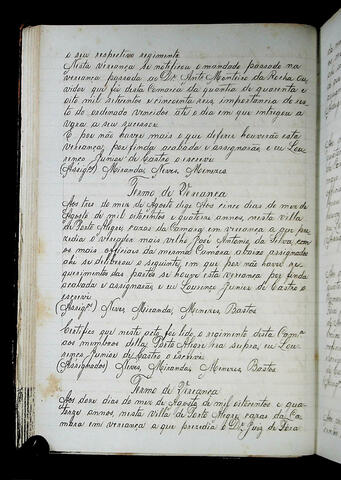 o seu respectivo regimento.
Nesta vereança se notificou o mandado passado na
vereança passada ao Dor. Anto. Monteiro da Rocha Ou-
vidor que foi desta Comarca da quantia de quarenta e
oito mil setecentos e cincoenta reis, importancia de res-
to do ordenado vencidos até o dia em que entregou a
vara a seu sucessor.
E por não haver mais o que deferir houverão esta
vereança, por finda acabada e assignarão, e eu Lou-
renço Junior de Castro o escrevi
(Assigos.) Miranda, Neves, Menezes
Termo de Vereança
Aos tres do mez de Agosto digo Aos cinco dias do mez de
Agosto de mil oitocentos e quatorze annos, nesta villa
de Porto Alegre, cazas da Camara em vereança a que pre-
zidia o vereador mais velho José Antonio da Silva, com
os mais officiaes da mesma Camara, abaixo assignados
ahi se deliberou o seguinte, em que por não haver re-
querimentos das partes se houve esta vereança por finda
acabada e assignarão, e eu Lourenço Junior de Castro o
escrevi
(Assigos.) Neves, Miranda, Menezes, Bastos
Certifico que neste acto foi lido o regimento desta Camra.
aos membros della Porto Alegre era supra, eu Lou-
renço Junior de Castro o escrevi
(Assignados) Neves, Miranda, Menezes, Bastos
Termo de Vereança
Aos doze dias do mez de Agosto de mil oitocentos e qua-
torze annos, nesta villa de Porto Alegre, cazas da Ca-
mara em vereança a que prezidia o Dor. Juiz de Fora